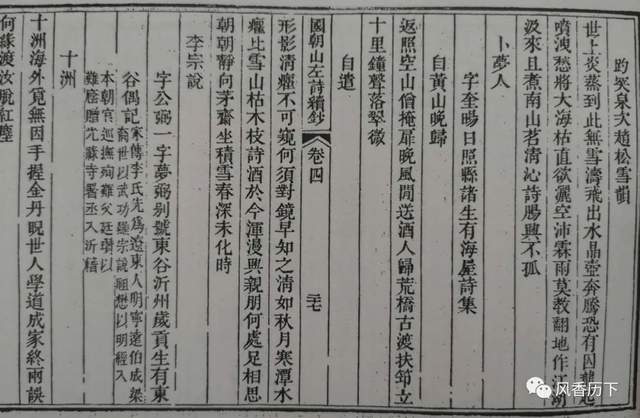 趵突泉次趙松雪韻
世上炎蒸到此無雪濤飛出水晶壺奔騰恐有囚龍起
噴洩愁將大海枯直欲灑空沛霖雨莫教翻地作江湖
汲來且煮南山茗淸沁詩腸興不孤
卜夢人
字奎暘日照縣諸生有海屋詩集
自黃山晚歸
返照空山僧掩扉晚風閒送酒人歸荒橋古渡扶筇立
十里鐘聲落翠微
自遣
國朝山左詩續鈔
卷四
三七
形影淸癯不可窺何須對鏡早知之淸如秋月寒潭水
癯比雪山枯木枝詩酒於今渾漫興親朋何處足相思
朝朝靜向茅齋坐積雪春深未化時
李宗說
字公弼一字夢弼別號東谷沂州歲貢生有東
谷偶記
家傳李氏先爲遼東人明寧遠伯成梁
裔世以武功顯宗說願懋以明經入
本朝官
巡撫殉難父廷瓚以
難廕贈光祿寺署丞入沂籍
十洲
十洲海外覓無因手握金丹哂世人學道成家終兩誤
何緣渡汝脫紅塵
风香历下